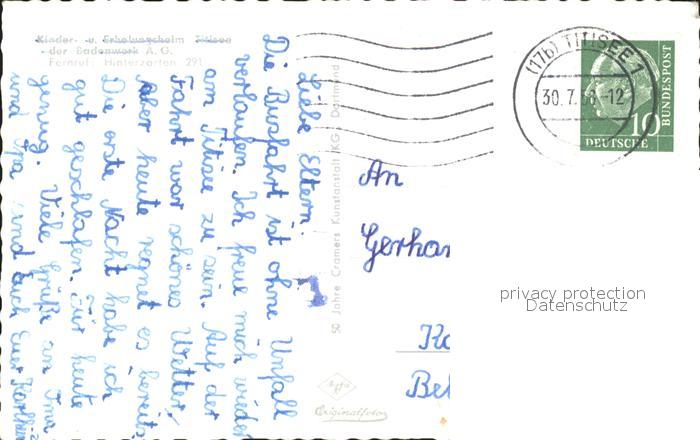 Kinder- u. Erholungsheim Titisee
der Badenwerk A.G.
Fernruf: Hinterzarten 291
Liebe Eltern!
Die Busfahrt ist ohne Unfall
verlaufen. Ich freue mich wieder
am Titisee zu sein. Auf der
Fahrt war schönes Wetter,
Aber heute regnet es bereits
Die erste Nacht habe ich
gut geschlafen. Für heute
genug. Viele Grüße an Oma
und Opa und Euch Euer
50 Jahre Cramers Kunstanstalt KG, Dortmund
Agfa
Originalfoto
(17b) TITISEE 1
30.7.56-12
10
DEUTSCHE
BUNDESPOST
An
Gerha
K
Be
privacy protection
Datenschutz